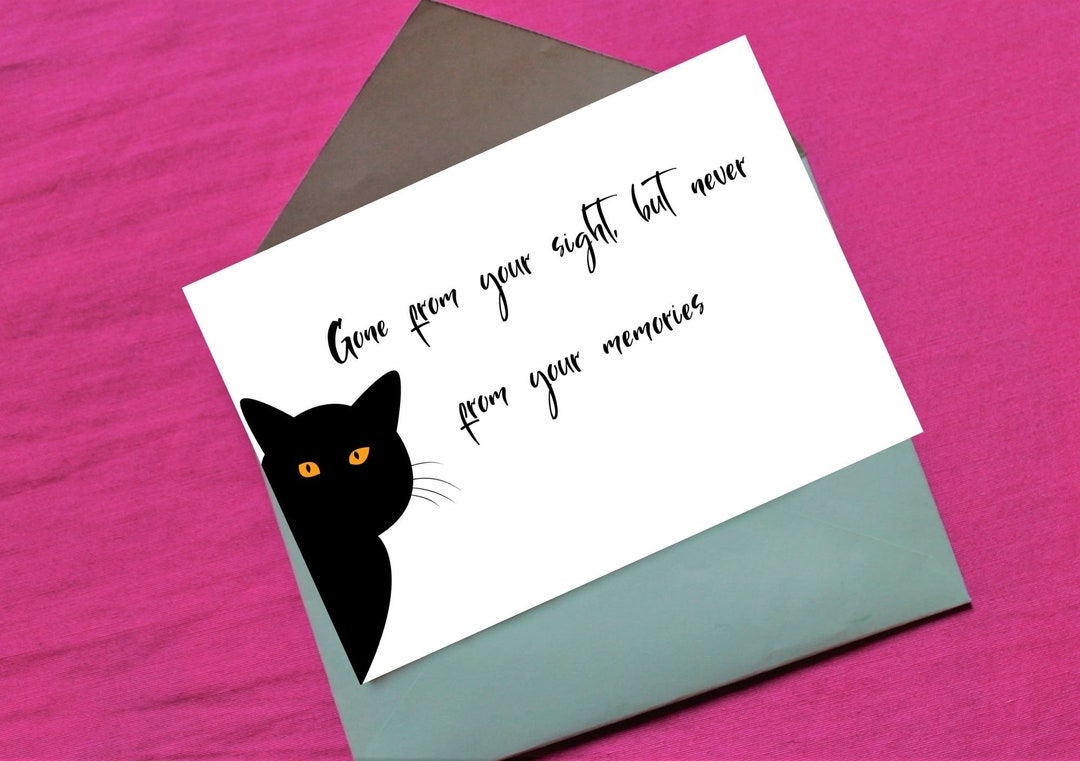 Gone from your sight, but never
from your memories